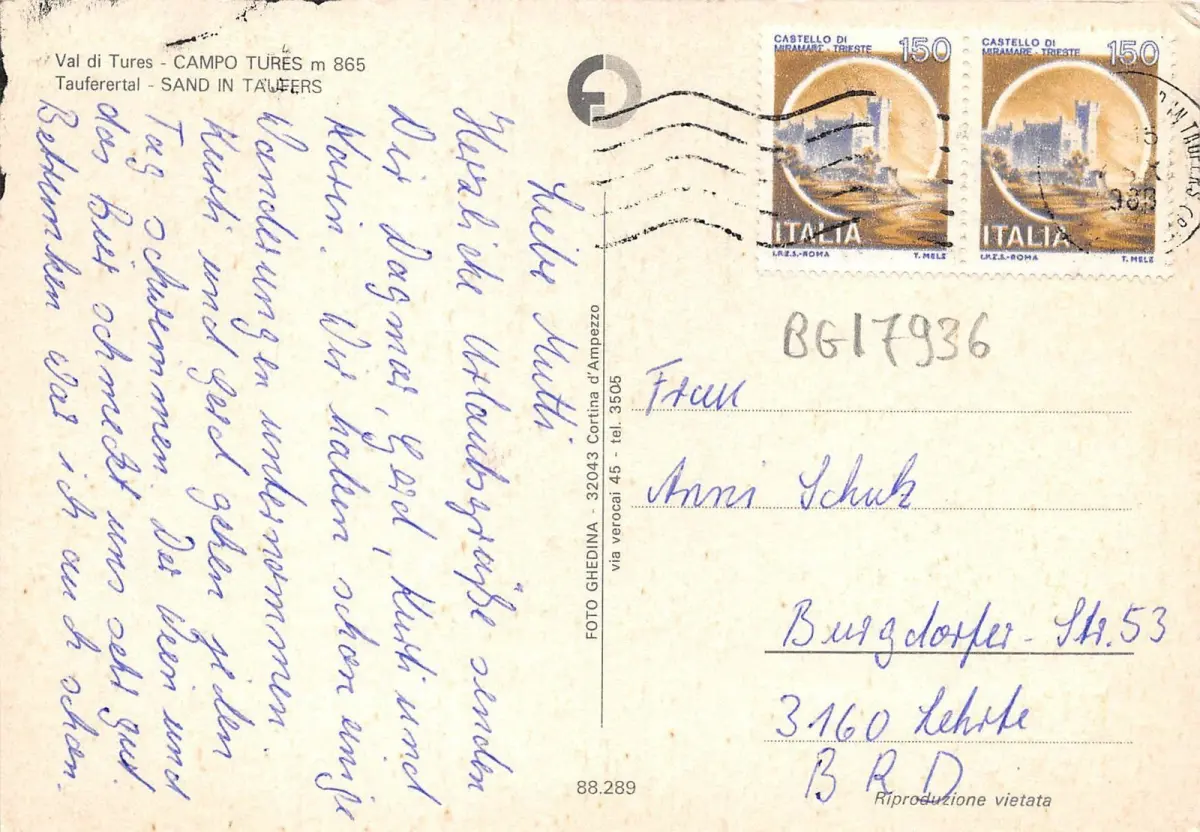 Val di Tures - CAMPO TURES m 865
Taufferertal - SAND IN TAUFERS
Liebe Mutti
Herzliche Urlaubsgrüße senden
Dir Dagmar, Gerd, Kurti und
Karin. Wir haben schon einige
Wanderungen unternommen.
Kurti und Gerd gehen jeden
Tag schwemmen. Der Wein und
das Bier schmeckt uns sehr gut.
Betrunken war ich auch schon.
FOTO GHEDINA - 32043 Cortina d'Ampezzo
via verocai 45 - tel. 3505
88.289
CASTELLO DI
MIRAMARE - TRIESTE
150
ITALIA
I.P.Z.S.-ROMA T. MELE
CASTELLO DI
MIRAMARE - TRIESTE
150
ITALIA
I.P.Z.S.-ROMA T. MELE
IN TAUFERS
BG17936
Frau
Anni Schulz
Burgdorfer-Str. 53
3160 Lehrte
BRD
Riproduzione vietata